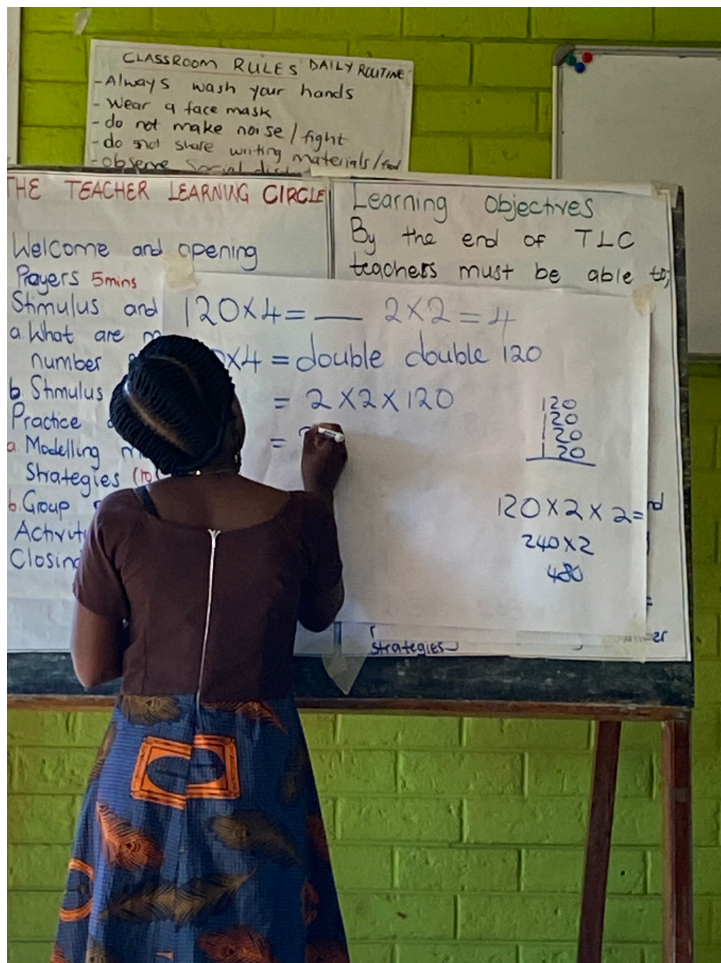 CLASSROOM RULES DAILY ROUTINE
- Always wash your hands
- Wear a face mask
- do not make noise / fight
- do not share writing materials /
- observe social
THE TEACHER LEARNING CIRCLE
Welcome and opening
Prayers 5mins
Stimulus and
a. What are
number
b Stimulus
Practice
a. Modelling
Strategies (10
b. Group
Activit
Closin
Learning Objectives
By the end of TLC
teachers must be able to;
120×4 = __ 2×2 = 4
×4 = double double 120
= 2×2×120
=
120
120
120
120
120×2×2=
240×2
480
strategies